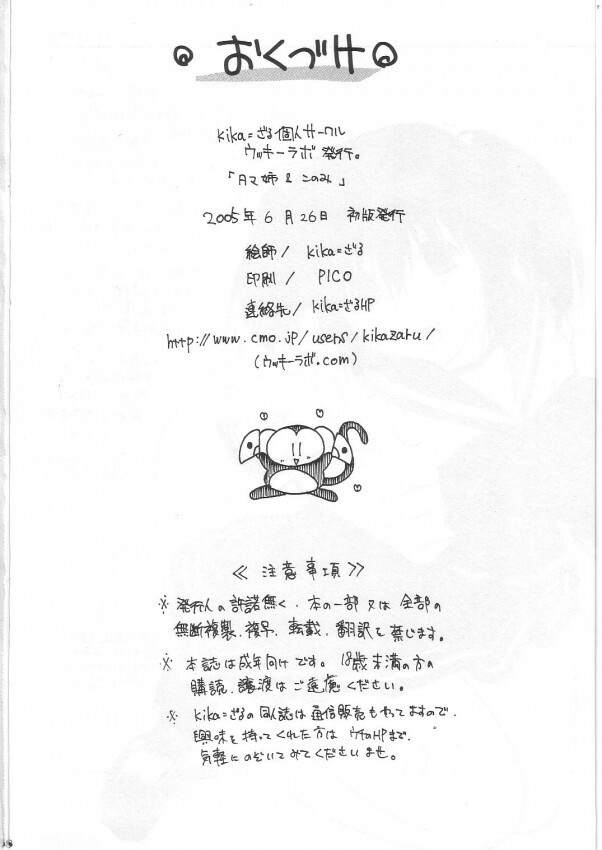 おくづけ
kika=ざる個人サークル
ウッキーラボ 発行。
「タマ姉 & このみ」
2005年 6月 26日 初版発行
絵師 / kika=ざる
印刷 / PICO
連絡先 / kika=ざるHP
http://www.cmo.jp/users/kikazaru/
(ウッキーラボ.com)
≪ 注意事項 ≫
※ 発行人の許諾無く、本の一部又は全部の
無断複製、複写、転載、翻訳を禁じます。
※ 本誌は成年向けです。18歳未満の方の
購読、譲渡はご遠慮ください。
※ kika=ざるの同人誌は通信販売もやってますので、
興味を持ってくれた方はウチのHPまで、
気軽にのぞいてみてくださいませ。